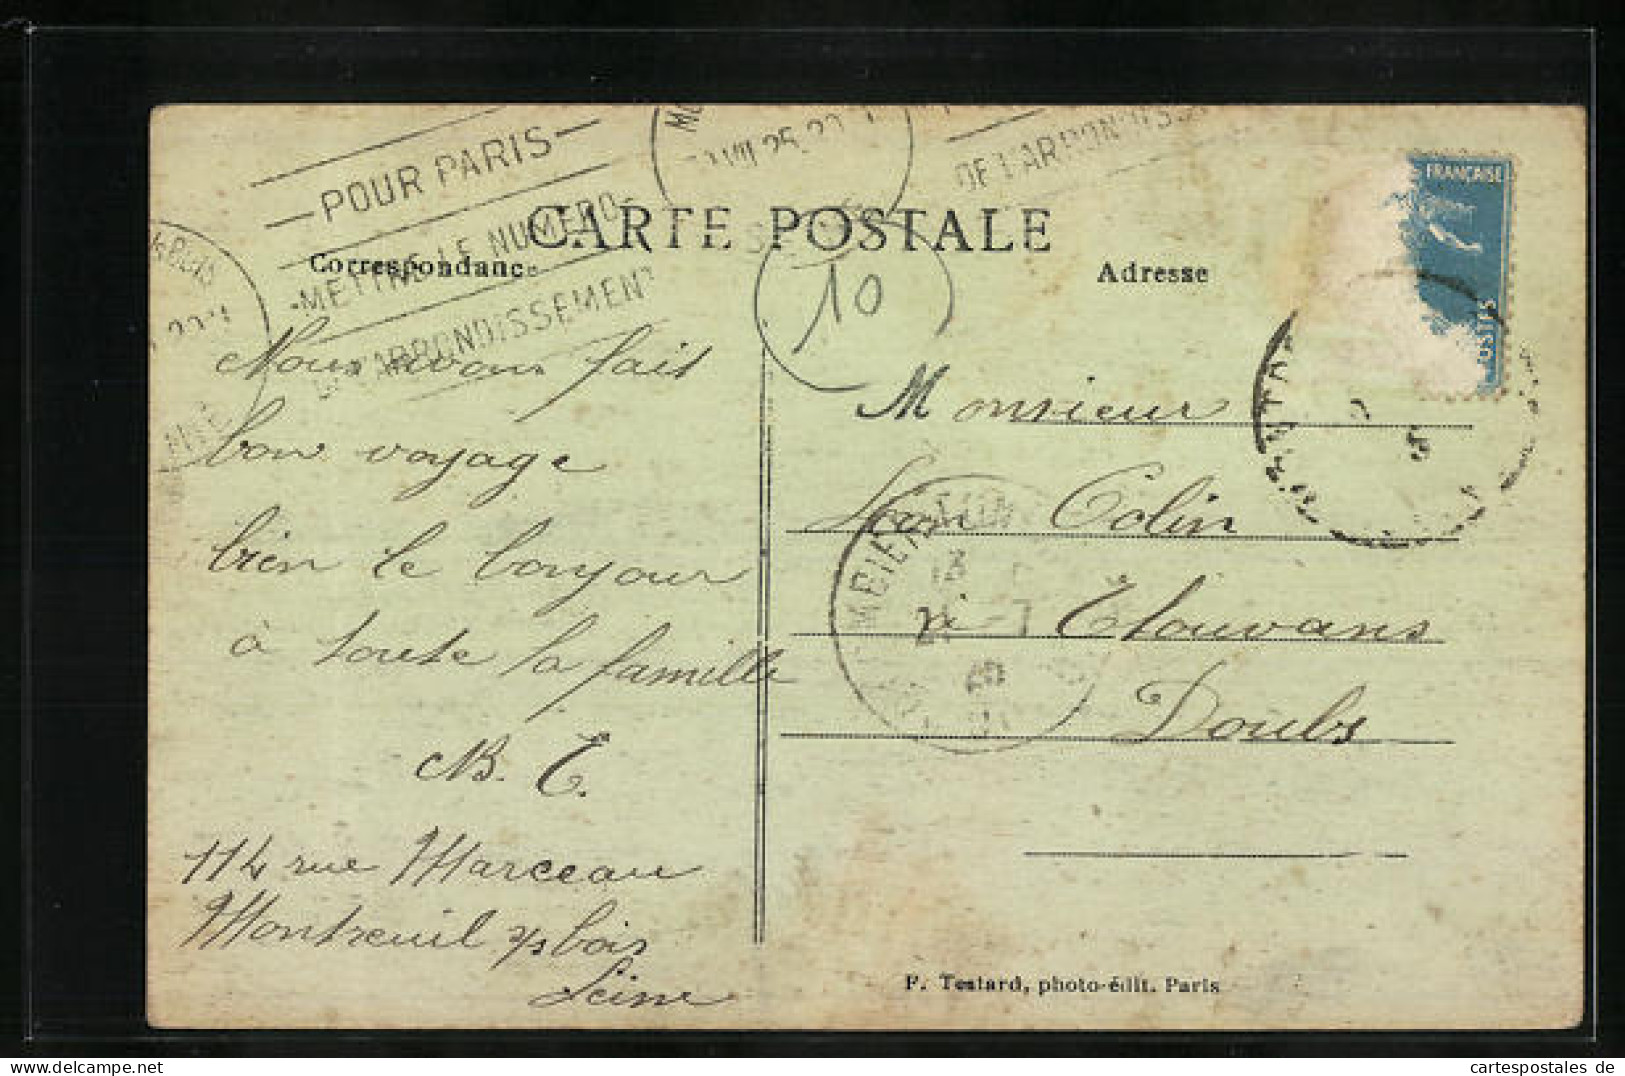 POUR PARIS
METTRE LE NUMÉRO
DE L'ARRONDISSEMENT
DE L'ARRONDISS
VII 25
CARTE POSTALE
Correspondance
Adresse
10
FRANÇAISE
POSTES
Nous avons fait
bon voyage
bien le bonjour
à toute la famille
B. E.
114 rue Marceau
Montreuil s/s bois
Seine
Monsieur
Léon Colin
à Etouvans
Doubs
13
-7
F. Testard, photo-édit. Paris
cartespostales de